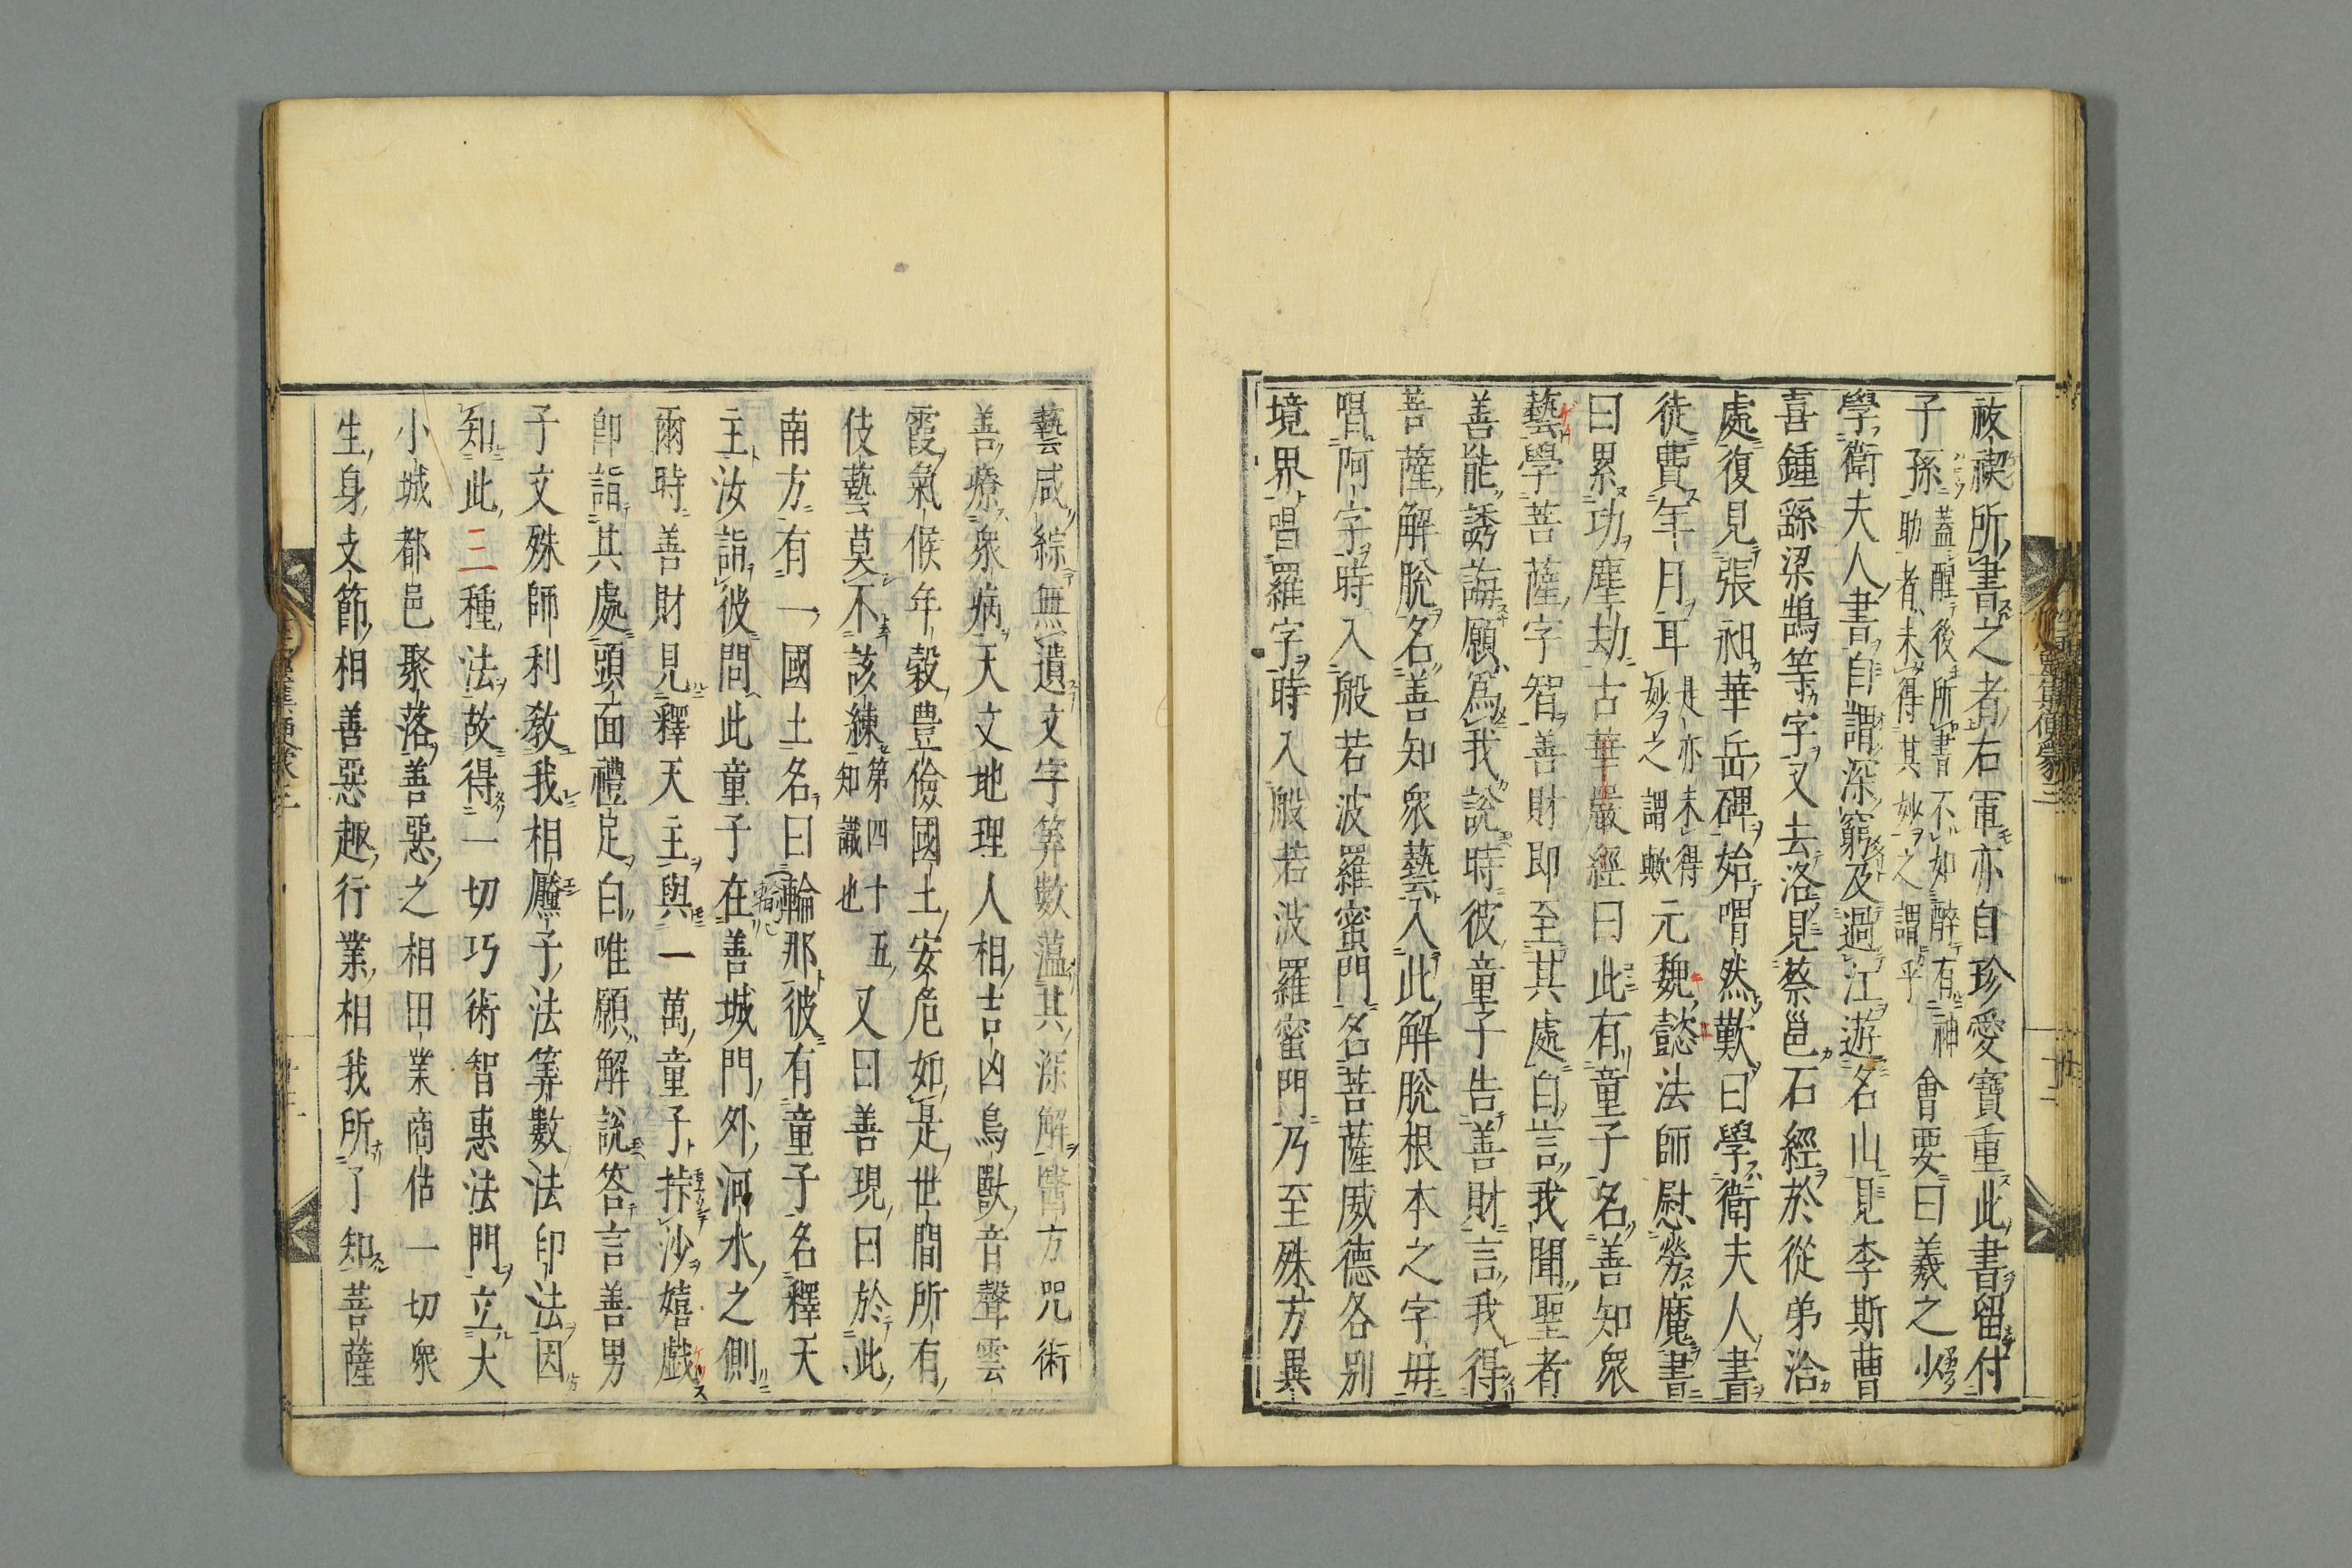 祓禊所書之者右軍亦自珍愛寶重此書留付
子孫蓋醒後所書不如醉有神助者未得其妙之謂乎會要曰羲之少
學衛夫人書自謂深窮及過江遊名山見李斯曹
喜鍾繇梁鵠等字又去洛見蔡邕石經於從弟洽
處復見張昶華岳碑始喟然歎曰學衛夫人書
徒費年月耳是亦未得妙之謂歟元魏懿法師慰勞魔書
曰累功塵劫古華嚴經曰此有童子名善知衆
藝學菩薩字智善財即至其處白言我聞聖者
善能誘誨願為我說時彼童子告善財言我得
菩薩解脫名善知衆藝入此解脫根本之字毋
唱阿字時入般若波羅蜜門名菩薩威德各別
境界唱羅字時入般若波羅蜜門乃至殊方異
藝咸綜無遺文字筭數蘊其深解醫方咒術
善療衆病天文地理人相吉凶鳥獸音聲雲
霞氣候年穀豊儉國土安危如是世間所有
伎藝莫不該練第四十五知識也又曰善現曰於此
南方有一國土名曰輪那彼有童子名釋天
主汝詣彼問此童子在善城門外河水之側
爾時善財見釋天主與一萬童子𢪛沙嬉戲
即詣其處頭面禮足白唯願解說答言善男
子文殊師利教我相黶子法筭數法印法因
知此二種法故得一切巧術智惠法門立大
小城都邑聚落善惡之相田業商估一切衆
生身支節相善惡趣行業相我所了知菩薩